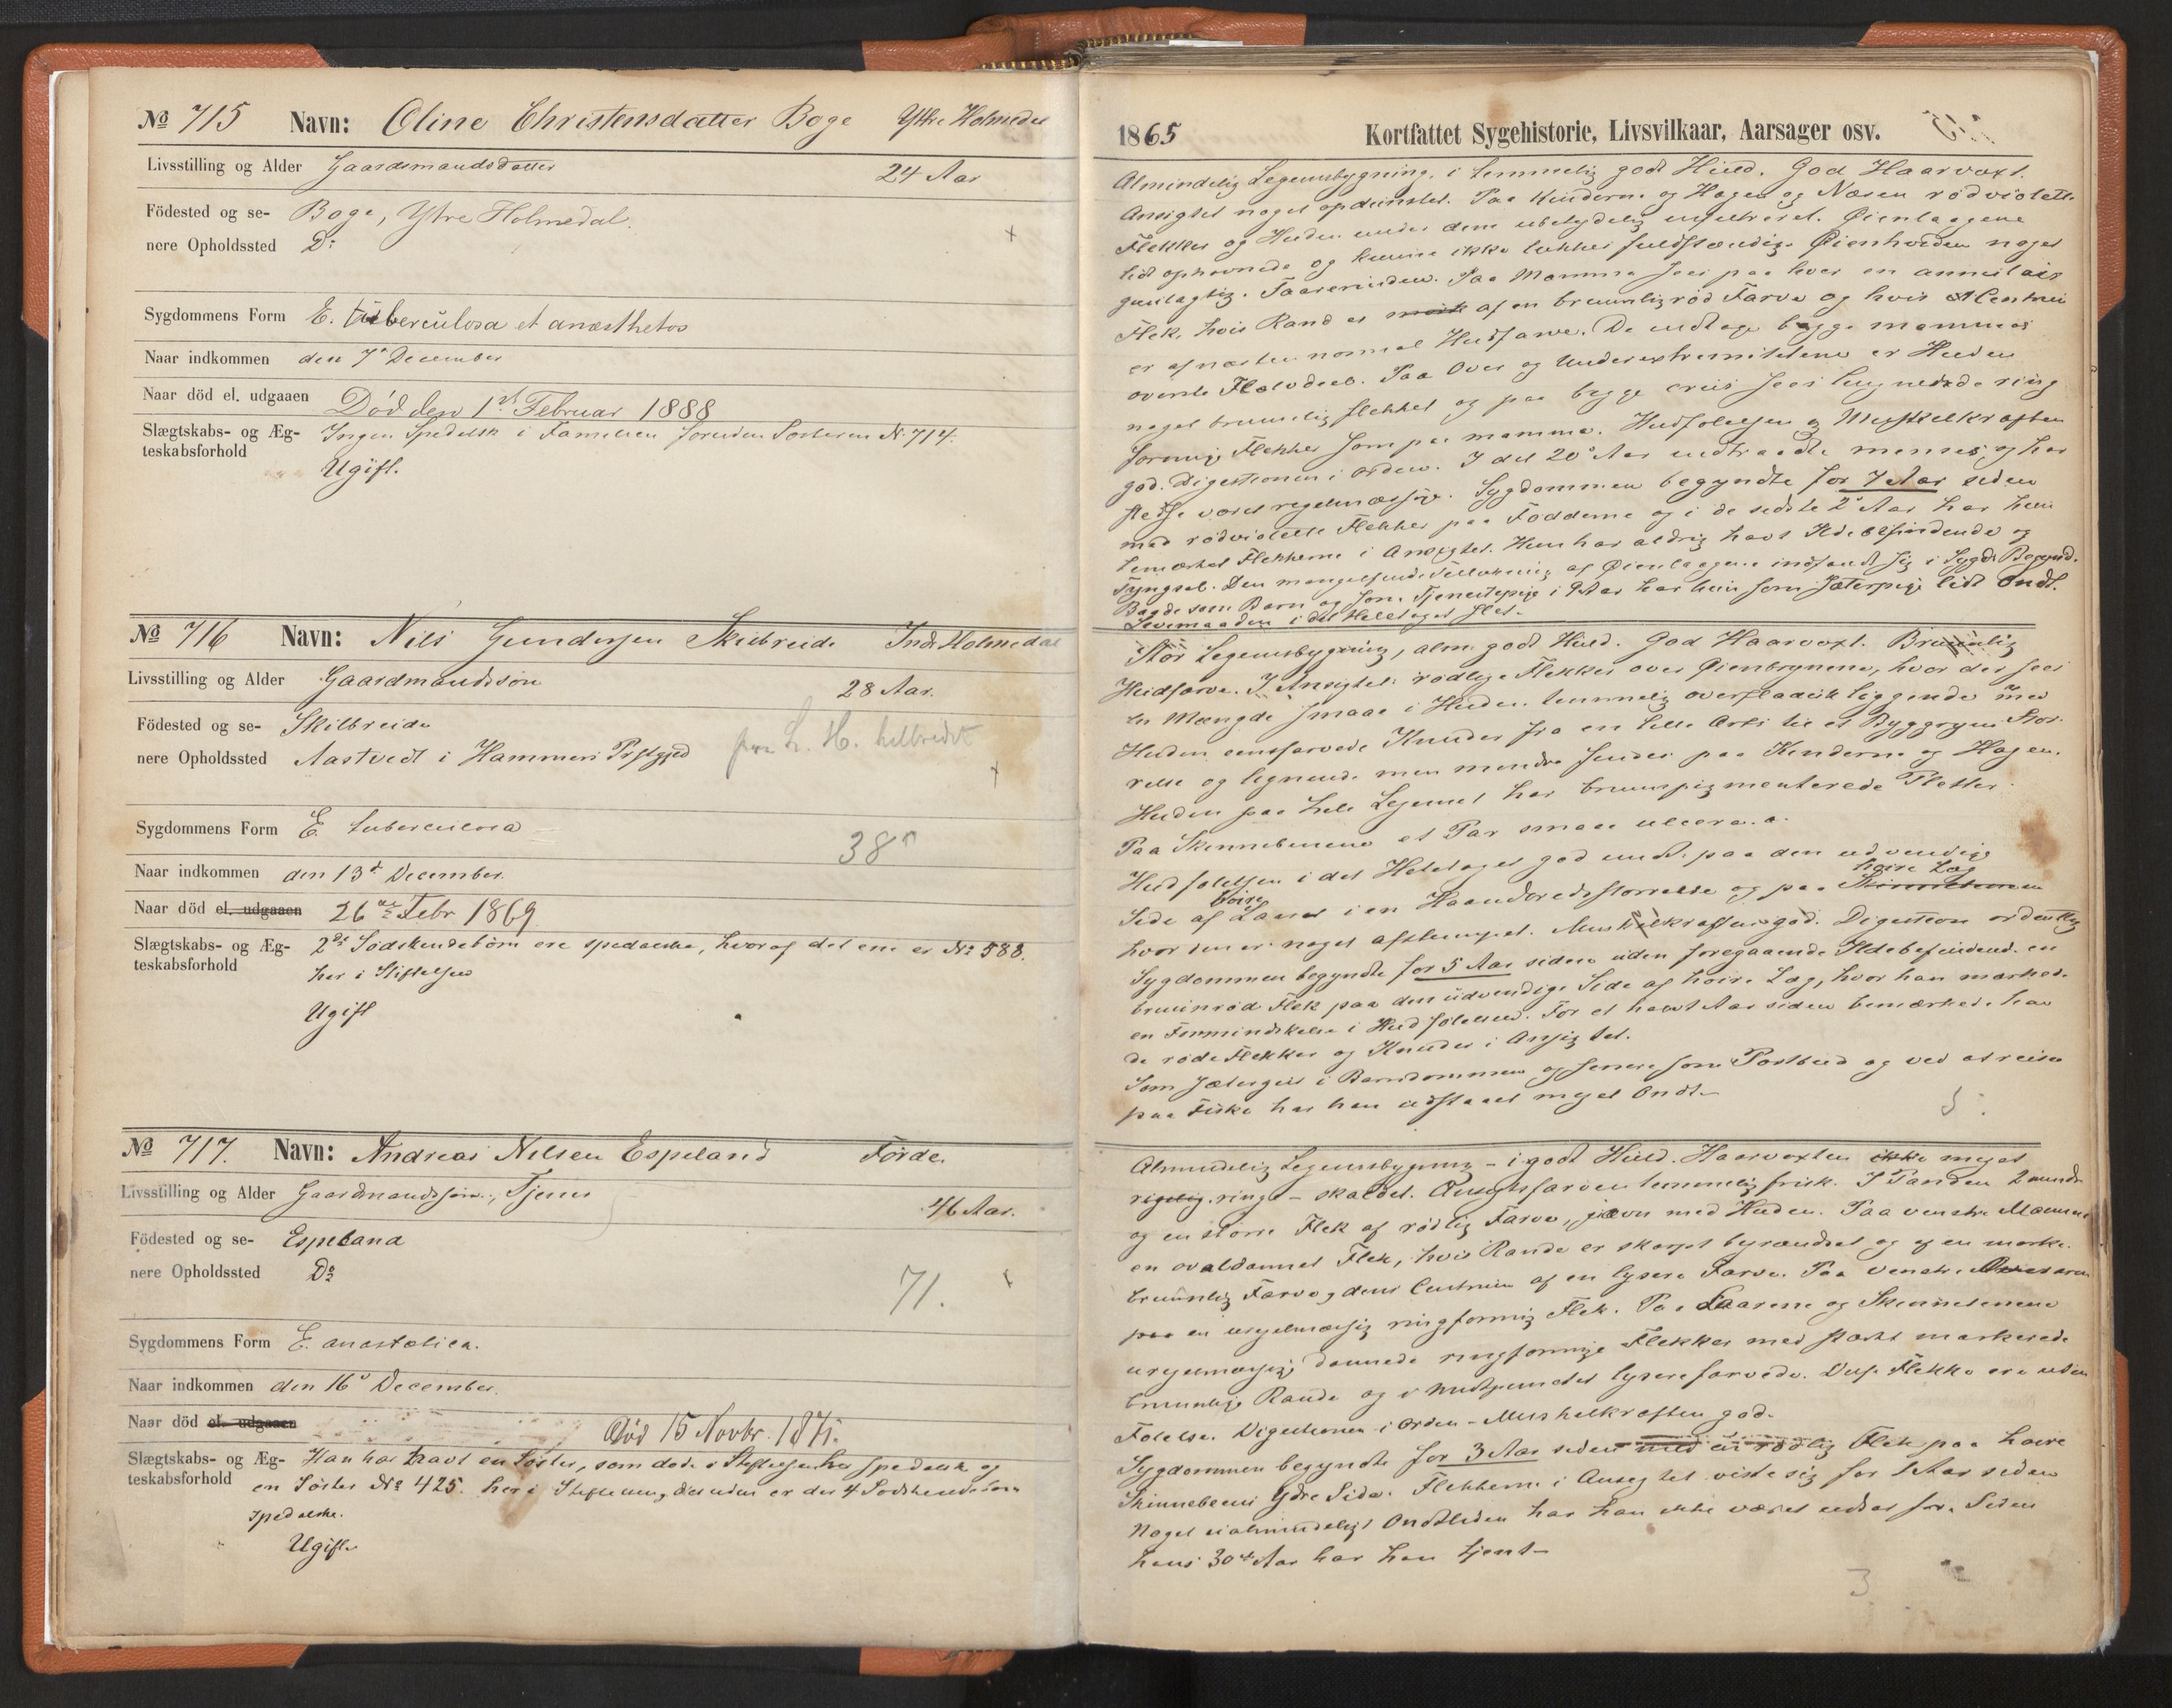 No 715 Navn: Oline Christensdatter Boge Yttre Holmedal
Livsstilling og Alder Gaardsmandsdatter 24 Aar
Födested og se- Boge, Ytre Holmedal.
nere Opholdssted Do
Sygdommens Form E. tuberculosa et anæsthetos
Naar indkommen den 7de December
Naar död el. udgaaen Död den 1st Februar 1888
Slægtskabs- og Æg- Ingen Spedalsk i Familien foruden Søsteren No 714.
teskabsforhold
Ugift.
No 716 Navn: Nils Gundersen Skilbreide Indr Holmedal
Livsstilling og Alder Gaardmandssøn 28 Aar.
Födested og se- Skilbreide
nere Opholdssted Aastvedt i Hammers Prstgjed fra L. H. helbredet
Sygdommens Form E tuberculosa
38
Naar indkommen den 13de December.
Naar död el. udgaaen 26de Febr 1869
Slægtskabs- og Æg- 2de Sødskendebørn ere spedalske, hvoraf det ene er No 588.
teskabsforhold her i Stiftelsen
Ugift
No 717. Navn: Andreas Nilsen Espeland Förde.
Livsstilling og Alder Gaardmandssøn, Tjener 46 Aar.
Födested og se- Espeland
nere Opholdssted Do
71.
Sygdommens Form E. anæstetica.
Naar indkommen den 16de December.
Naar död el. udgaaen Död 15 Novbr. 1871.
Slægtskabs- og Æg- Han har havt en Søster, som døde i Stiftelsen her spedalsk og
teskabsforhold en Søster No 425. her i Stiftelsen, desuden er der 4 Sødskendebørn
spedalske.
Ugift.
1865 Kortfattet Sygehistorie, Livsvilkaar, Aarsager osv.
Almindelig Legemsbygning, i temmelig godt Huld. God Haarvoxt.
Ansigtet noget opdunstet. Paa Kinderne og Hagen og Næsen rødviolette
Flekker og Huden under dem ubetydelig infiltreret. Øienlaagene
lidt ophovnede og kunne ikke lukkes fuldstændig. Øienhviden noget
guulagtig. Taarerinden. Paa Mamma sees paa hver en annulair
Flek, hvis Rand er mørk af en bruunlig rød Farve og hvis Centrum
er af næsten normal Hudfarve. De indtage begge mammas
øverste Halvdeel. Paa Over og Underextremiteterne er Huden
noget bruunlig flekket og paa begge cruis sees lignende ring
formige Flekker som paa mamma. Hudfølelsen og Muskelkraften
god. Digestionen i orden. I det 20de Aar indtraadte menses og har
stedse været regelmæssige. Sygdommen begyndte for 7 Aar siden
med rødviolette Flekker paa Fødderne og i de sidste 2de Aar har hun
bemærket Flekkerne i Ansigtet. Hun har aldrig havt Ildebefindende og
Tyngsel. Den mangelfunde Tillukning af Øienlaagene indfandt sig i Sygds Begynd.
Baade som Barn og som Tjenestepige i 9 Aar har hun som Jæterpige lidt Ondt.
Levemaaden i det Heletaget slet.
Stor Legemsbygning, alm. godt Huld. God Haarvoxt. Bruunlig
Hudfarve. I Ansigtet rødlige Flekker over Øienbrynene, hvor der sees
en Mængde smaae i Huden temmelig overfladisk liggende med
Huden eensfarvede Knuder fra en lille Ærts til et Byggryns Stør-
relse og lignende men mindre findes paa Kinderne og Hagen.
Huden paa hele Legemet har bruunpigmenterede Pletter.
Paa Skinnebenene et Par smaae ulcera.
Hudfølelsen i det Heletaget god undt. paa den udvendige
Side af høire Laar i en Haandbredsstørrelse og paa Skinnebenene høire Læg
hvor den er noget afstumpet. Muskelkraften god. Digestion ordentlig
Sygdommen begyndte for 5 Aar siden uden foregaaende Ildebefindend. en
bruunrød Flek paa den udvendige Side af høire Læg, hvor han mærkede
en Formindskelse i Hudfølelsen. For et halvt Aar siden bemærkede han
de røde Flekker og Knuder i Ansigtet.
Som Jætergut i Barndommen og senere som Postbud og ved at reise
paa Fiske har han udstaaet meget Ondt.
5.
Almindelig Legemsbygning - i godt Huld. Haarvoxten ikke meget
rigelig ringe - skaldet. Ansigtsfarven temmelig frisk. I Panden 2 mindre
og en større Flek af rødlig Farve, jævn med Huden. Paa venstre Mamma
en ovaldannet Flek, hvis Rande er skarpt begrændset og af en mørke-
bruunlig Farve og dens Centrum af en lysere Farve. Paa venstre Overarm
paa en uregelmæssig ringformig Flek. Paa Laarene og Skinnebenene
uregelmæssig dannede ringformige Flekker med stærkt markerede
bruunlige Rande og i Midtpunctet lysere farvede. Disse Flekke ere uden
Følelse. Digestionen i Orden - Muskelkraften god.
Sygdommen begyndte for 3 Aar siden med en rødlig Flek paa høire
Skinnebeens ydre Side. Flekkerne i Ansigtet viste sig for 1 Aar siden
Noget ualmindeligt Ondtliden har han ikke været udsat for. Siden
hans 30te Aar har han tjent-
3